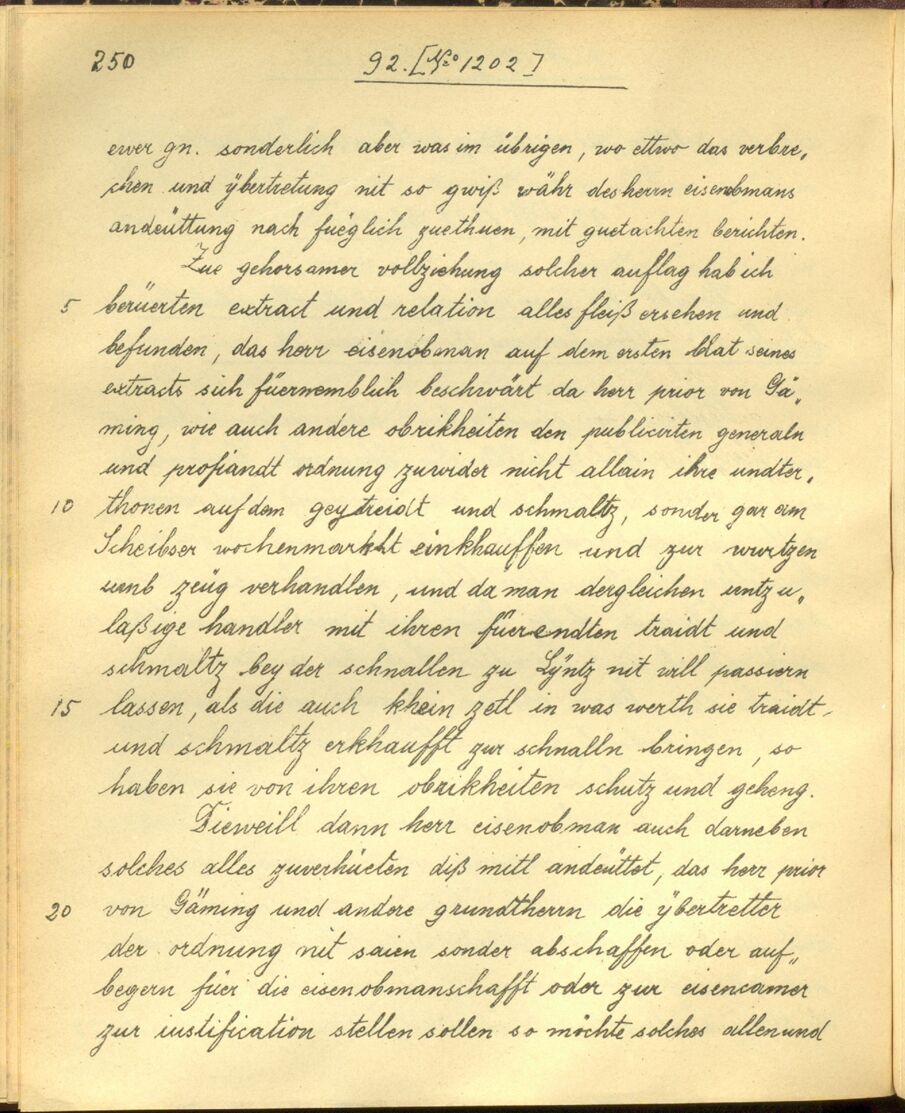 250
92. [No 1202]
ewer gn. sonderlich aber was im übrigen, wo ettwo das verbre„
chen und ÿbertretung nit so gwiß währ des herrn eisenobmans
andeüttung nach füeglich zuethuen, mit guetachten berichten.
Zue gehorsamer vollziehung solcher auflag hab ich
5 berüerten extract und relation alles fleiß ersehen und
befunden, das herr eisenobman auf dem ersten blat seines
extracts sich füernemblich beschwärt da herr prior von Gä„
ming, wie auch andere obrikheiten den publicirten generaln
und profiandt ordnung zuwider nicht allain ihre undter„
10 thonen auf dem geytreidt und schmaltz, sonder gar am
Scheibser wochenmarkht einkhauffen und zur wurtzen
umb zeüg verhandlen, und da man dergleichen untzu„
laßige handler mit ihren füerendten traidt und
schmaltz bey der schnallen zu Lÿntz nit will passiern
15 lassen, als die auch khein zetl in was werth sie traidt
und schmaltz erkhaufft zur schnalln bringen, so
haben sie von ihren obrikheiten schutz und geheng.
Dieweill dann herr eisenobman auch darneben
solches alles zuverhüeten diß mitl andeüttet, das herr prior
20 von Gäming und andere grundtherrn die ÿbertretter
der ordnung nit saien sonder abschaffen oder auf„
begern füer die eisenobmanschafft oder zur eisencamer
zur iustification stellen sollen so möchte solches allen und